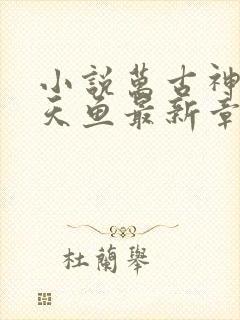 小說萬古神
天魚最新章
杜蘭舉